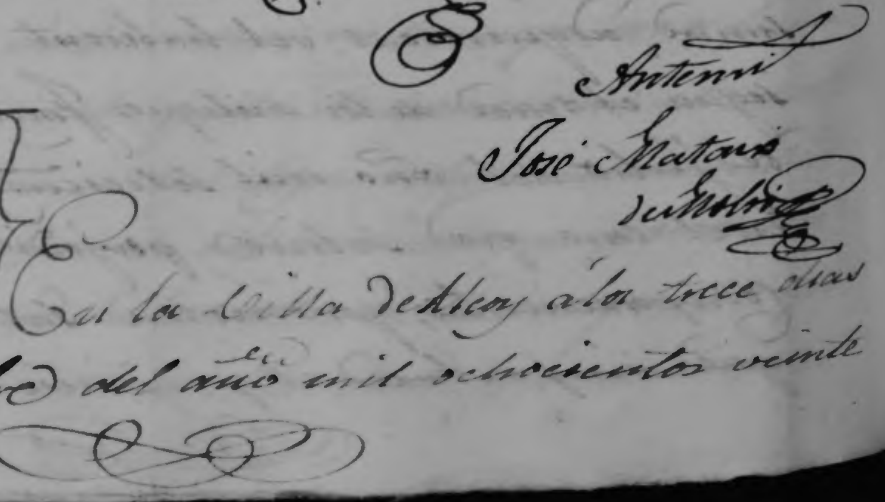 Antemi
José Mataix
de Molina
En la Villa de Alcoy álos trece dias
del año mil ochocientos veinte